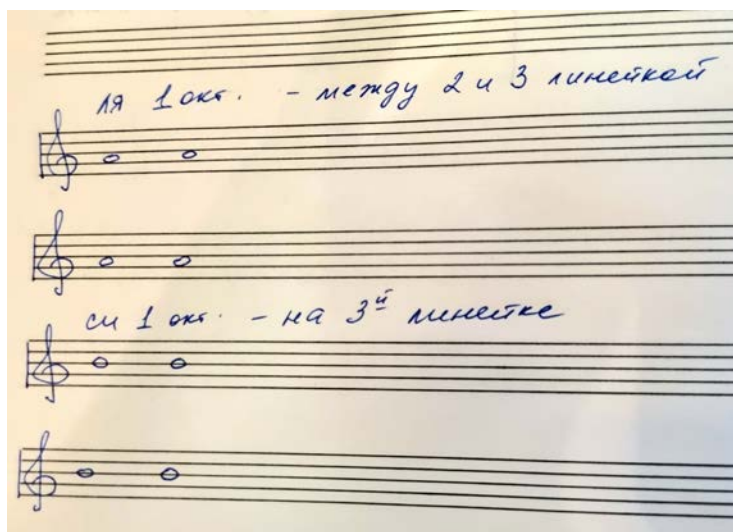 ля 1 окт. - между 2 и 3 линейкой
си 1 окт. - на 3й линейке